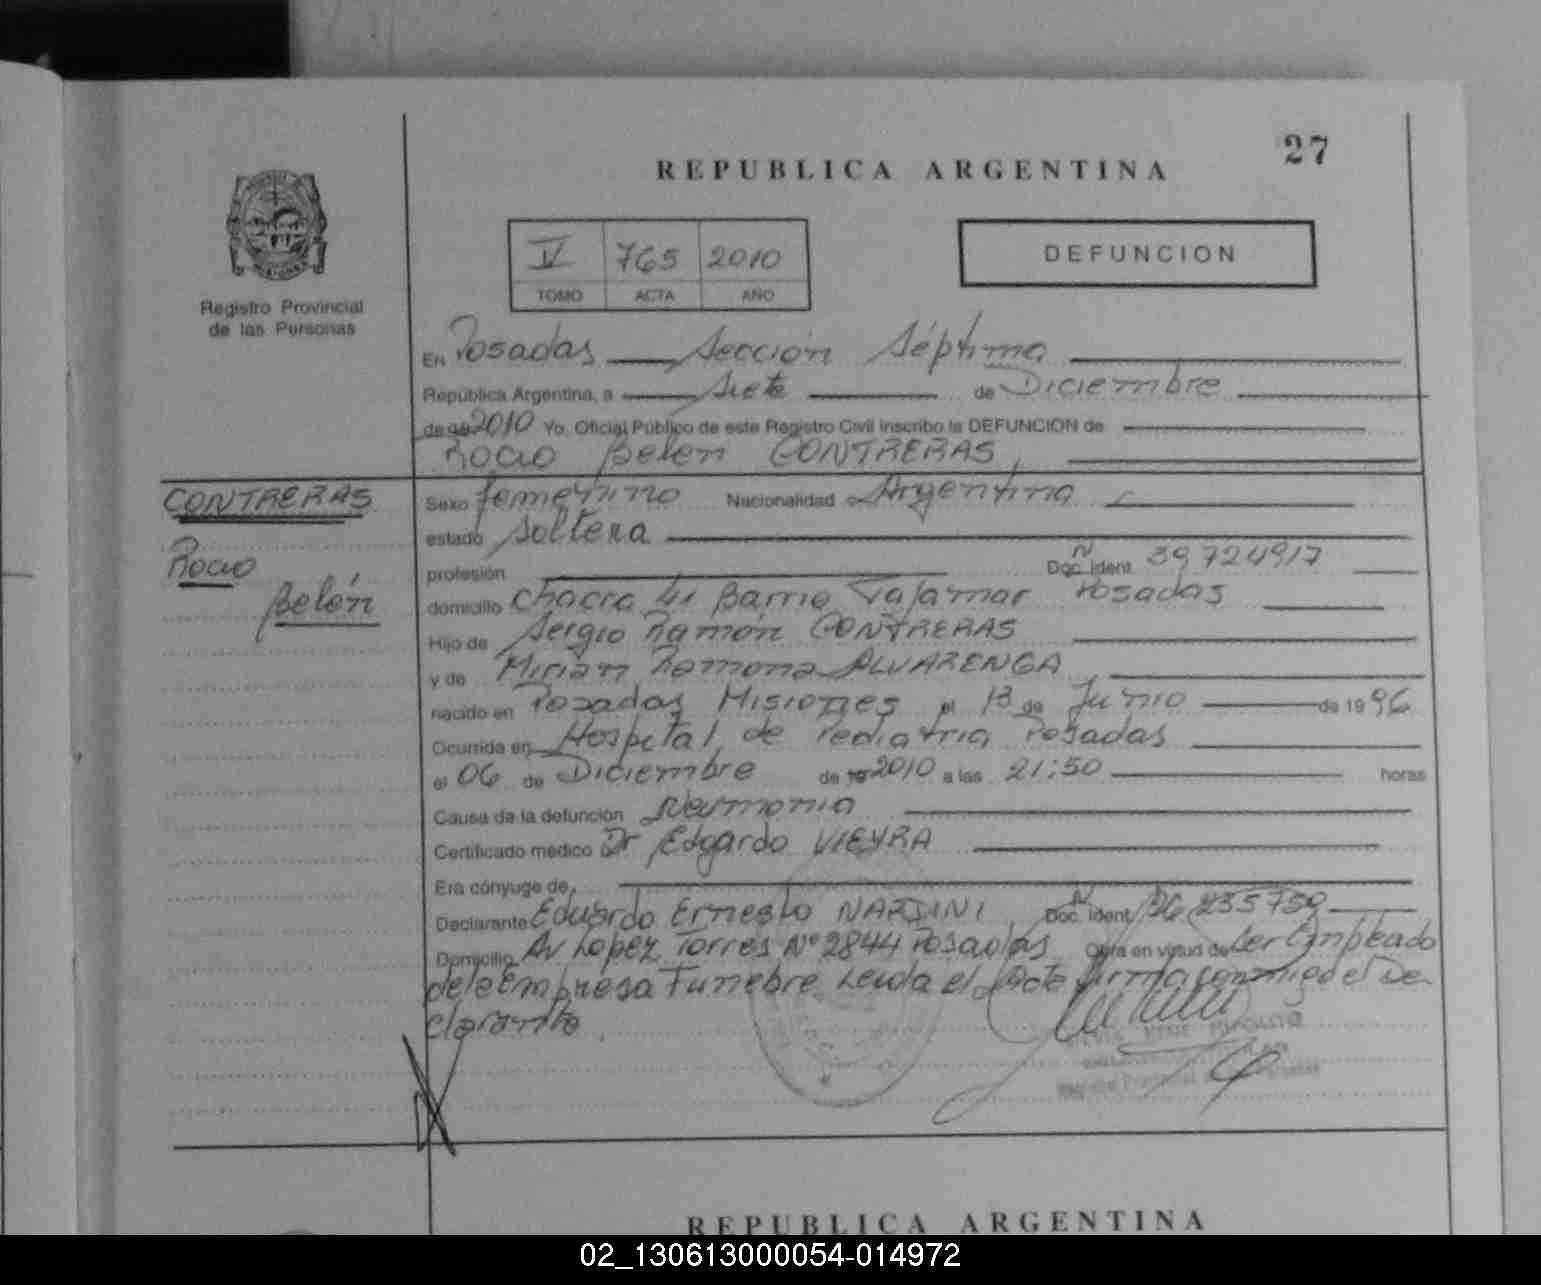 27
REPUBLICA ARGENTINA
IV 765 2010
TOMO ACTA AÑO
DEFUNCION
Registro Provincial
de las Personas
En Posadas Sección Séptima
República Argentina, a Siete de Diciembre
de 2010 Yo, Oficial Público de este Registro Civil inscribo la DEFUNCION de
Rocio Belén CONTRERAS
CONTRERAS
Rocio
Belén
Sexo femenino Nacionalidad Argentina
estado Soltera
profesión Doc. Ident. N 39724917
domicilio Chacra Barrio Tajamar Posadas
Hijo de Sergio Ramón CONTRERAS
y de Miriam Ramona ALVARENGA
nacido en Posadas Misiones el 13 de Junio de 1996
Ocurrida en Hospital de Pediatria Posadas
el 06 de Diciembre de 19 2010 a las 21:50 horas
Causa de la defunción Neumonia
Certificado médico Dr Edgardo VIEYRA
Era cónyuge de
Declarante Eduardo Ernesto NARDINI Doc. Ident. N 26235759
Domicilio Av Lopez Torres Nº 2844 Posadas Obra en virtud de Ser Empleado
de la Empresa Funebre Leida el Acta firma conmigo el De
clarante
REPUBLICA ARGENTINA
02_130613000054-014972